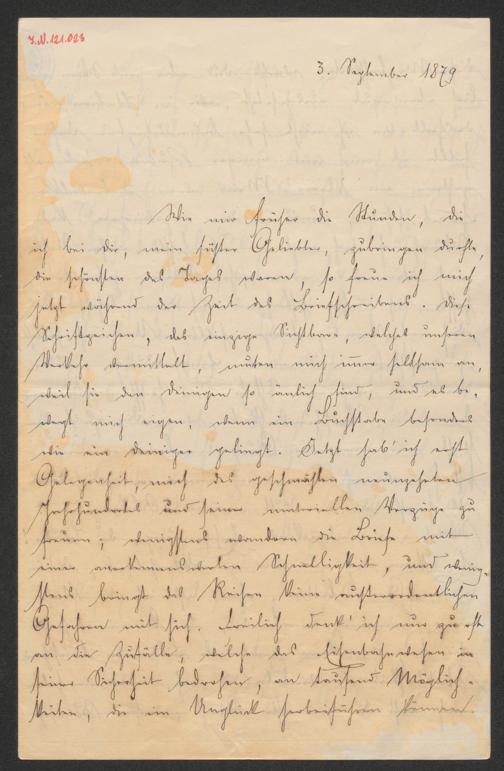 I.N. 121.023
3. September 1879
Wie mir früher die Stunden, die
ich bei dir, mein süßer Geliebter, zubringen durfte,
die schönsten des Tages waren, so freue ich mich
jetzt während der Zeit des Briefschreibens. Diese
Schriftzeichen, das einzige Sichtbare, welches unseren
Verkehr vermittelt, muten mich im̄er seltsam an,
weil sie den deinigen so änlich sind, und es be-
wegt mich eigen, wenn ein Buchstabe besonders
wie ein deiniger gelingt. Jetzt hab' ich erst
Gelegenheit, mich des geschmähten neunzehnten
Jahrhundertes und seiner materiellen Vorzüge zu
freuen; wenigstens wandern die Briefe mit
einer anerkennenswerten Schnelligkeit, und wenig-
stens bringt das Reisen keine außerordentlichen
Gefahren mit sich. Freilich denk' ich nur zu oft
an die Zufälle, welche das Eisenbahnwesen in
seiner Sicherheit bedrohen, an tausend Möglich-
keiten, die ein Unglück herbeiführen können.